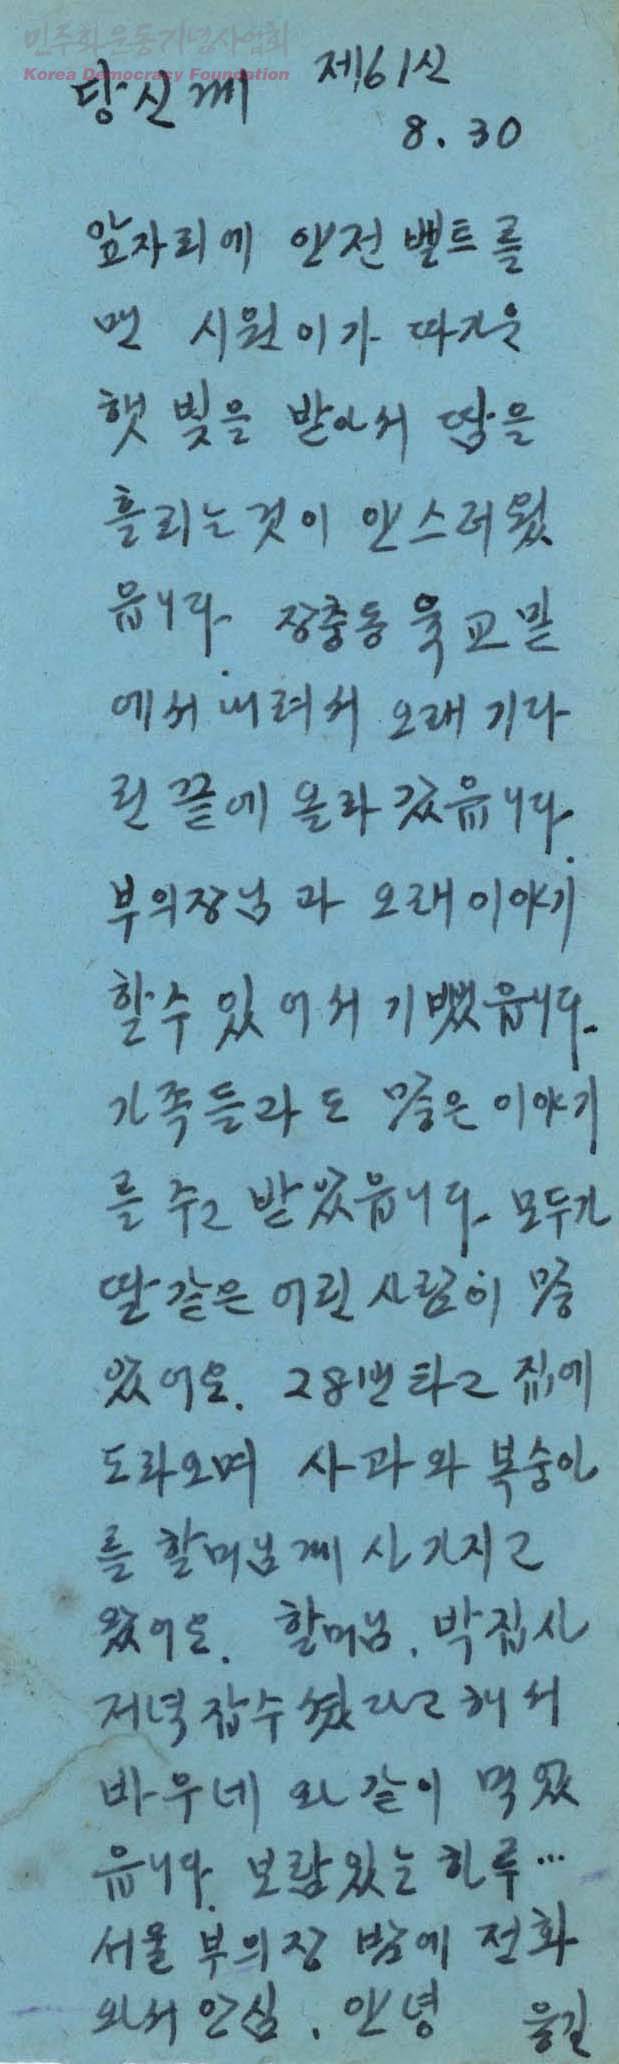 민주화운동기념사업회
Korea Democracy Foundation
당신께 제161신
8. 30
앞자리에 안전 벨트를
맨 시원이가 따가운
햇빛을 받아서 땀을
흘리는것이 안스러웠
읍니다. 장충동 육교 밑
에서 내려서 오래 기다
린 끝에 올라 갔읍니다.
부의장님과 오래 이야기
할수 있어서 기뻤읍니다.
가족들과도 많은 이야기
를 주고 받았읍니다. 모두가
딸 같은 어린 사람이 많
았어요. 28번 타고 집에
도라오며 사과와 복숭아
를 할머님께 사가지고
왔어요. 할머님, 박집사
저녁 잡수셨다고 해서
바우네와 같이 먹었
읍니다. 보람있는 하루…
서울 부의장 밤에 전화
와서 안심. 안녕 용길